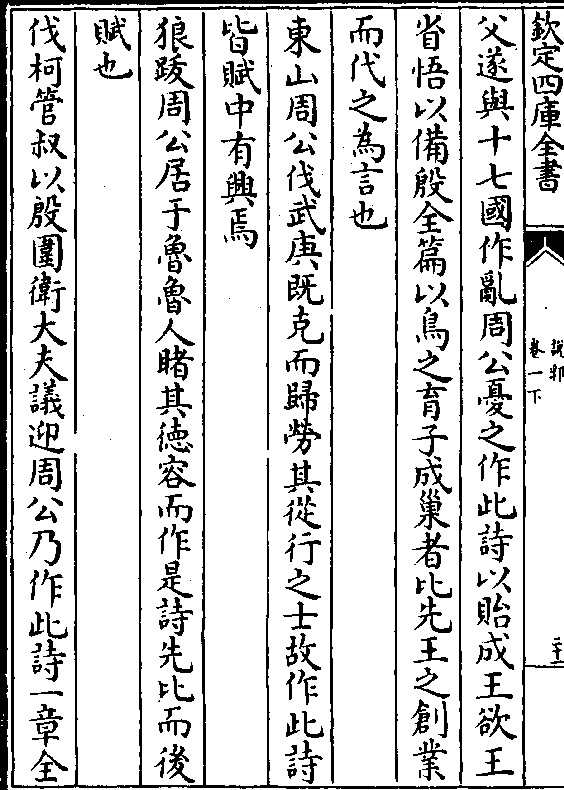 欽定四庫全書
說郛
卷一下
二十一
父遂與十七國作亂周公憂之作此詩以貽成王欲王
省悟以備殷全篇以鳥之育子成巢者比先王之創業
而代之為言也
東山周公伐武庚既克而歸勞其從行之士故作此詩
皆賦中有興焉
狼跋周公居于魯魯人睹其德容而作是詩先比而後
賦也
伐柯管叔以殷圍衛大夫議迎周公乃作此詩一章全